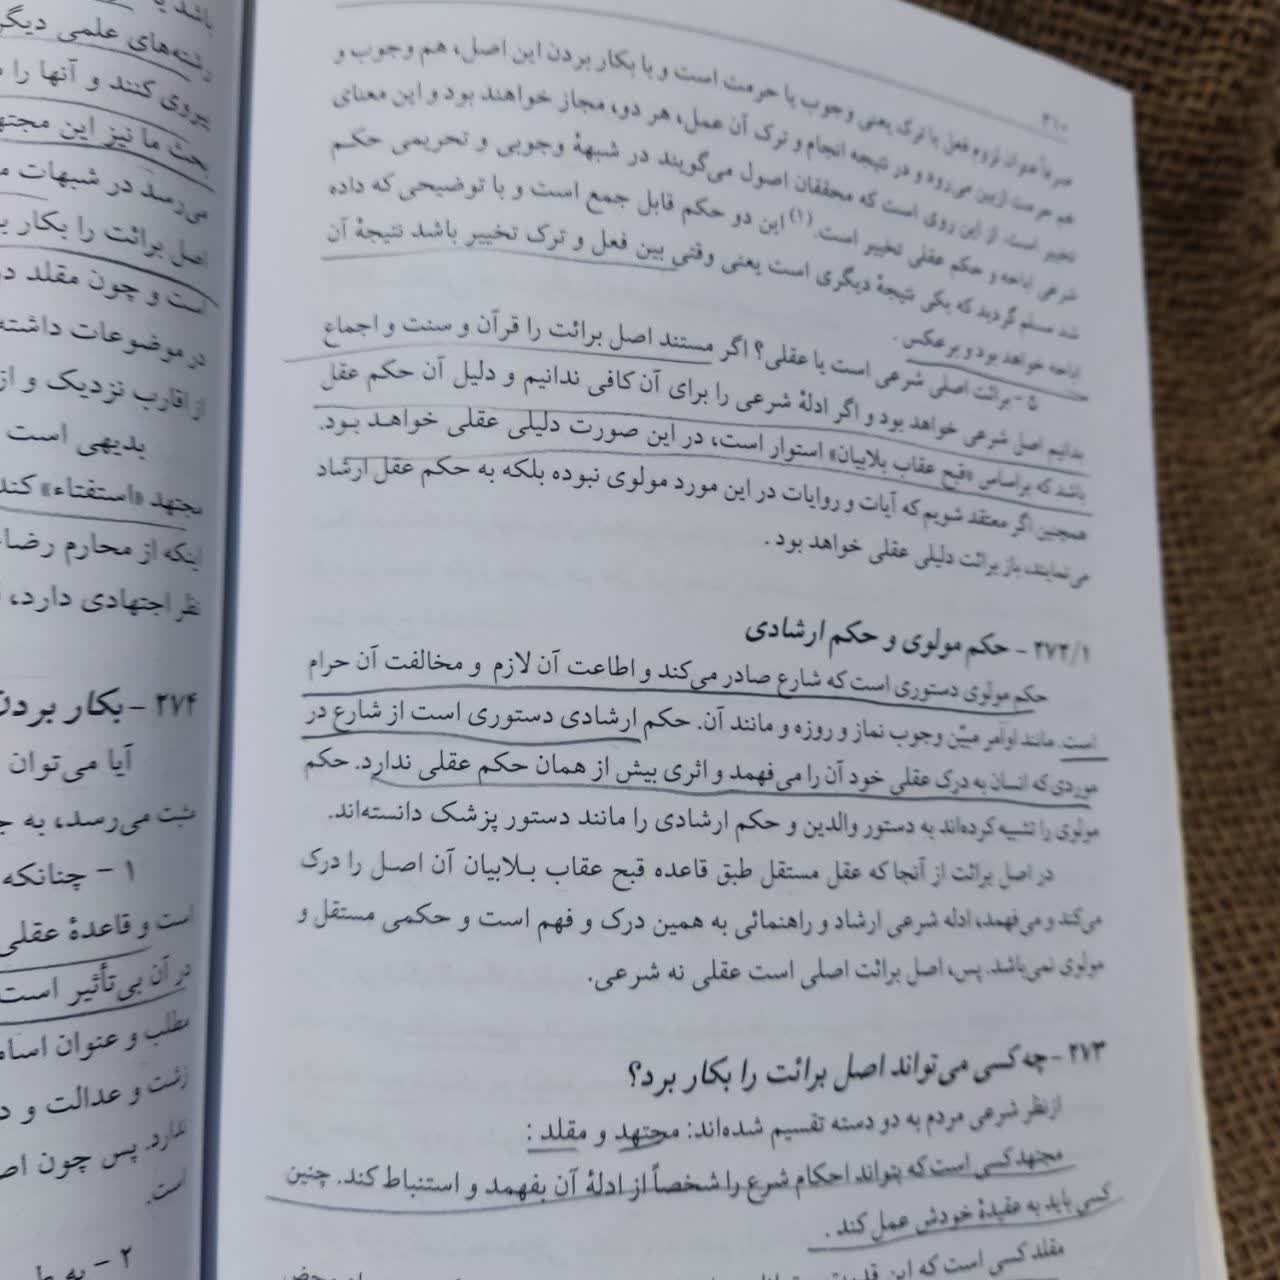 ۳۶۰
صرفاً عنوان لزوم فعل یا ترک یعنی وجوب یا حرمت است و با بکار بردن این اصل، هم وجوب و
هم حرمت ازبین می‌رود و در نتیجه انجام و ترک آن عمل، هر دو، مجاز خواهند بود و این معنای
تخییر است. از این روی است که محققان اصول می‌گویند در شبههٔ وجوبی و تحریمی حکم
شرعی اباحه و حکم عقلی تخییر است.(۱) این دو حکم قابل جمع است و با توضیحی که داده
شد مسلم گردید که یکی نتیجهٔ دیگری است یعنی وقتی بین فعل و ترک تخییر باشد نتیجهٔ آن
اباحه خواهد بود و برعکس.
۵- برائت اصلی شرعی است یا عقلی؟ اگر مستند اصل برائت را قرآن و سنت و اجماع
بدانیم اصل شرعی خواهد بود و اگر ادلهٔ شرعی را برای آن کافی ندانیم و دلیل آن حکم عقل
باشد که براساس «قبح عقاب بلابیان» استوار است، در این صورت دلیلی عقلی خواهد بود.
همچنین اگر معتقد شویم که آیات و روایات در این مورد مولوی نبوده بلکه به حکم عقل ارشاد
می‌نمایند، باز برائت دلیلی عقلی خواهد بود.
۲۷۲/۱- حکم مولوی و حکم ارشادی
حکم مولوی دستوری است که شارع صادر می‌کند و اطاعت آن لازم و مخالفت آن حرام
است. مانند اوامر مبیّن وجوب نماز و روزه و مانند آن. حکم ارشادی دستوری است از شارع در
موردی که انسان به درک عقلی خود آن را می‌فهمد و اثری بیش از همان حکم عقلی ندارد. حکم
مولوی را تشبیه کرده‌اند به دستور والدین و حکم ارشادی را مانند دستور پزشک دانسته‌اند.
در اصل برائت از آنجا که عقل مستقل طبق قاعده قبح عقاب بلابیان آن اصل را درک
می‌کند و می‌فهمد، ادله شرعی ارشاد و راهنمائی به همین درک و فهم است و حکمی مستقل و
مولوی نمی‌باشد. پس، اصل برائت اصلی است عقلی نه شرعی.
۲۷۳- چه کسی می‌تواند اصل برائت را بکار برد؟
ازنظر شرعی مردم به دو دسته تقسیم شده‌اند: مجتهد و مقلد:
مجتهد کسی است که بتواند احکام شرع را شخصاً از ادلهٔ آن بفهمد و استنباط کند. چنین
کسی باید به عقیدهٔ خودش عمل کند.
مقلد کسی است که این
باشد یا
رشته‌های علمی دیگر
پیروی کنند و آنها را
بحث ما نیز این مجته
می‌رسد در شبهات
اصل برائت را بکار
است و چون مقلد در
در موضوعات داشته
از اقارب نزدیک و از
بدیهی است
مجتهد «استفتاء» کند
اینکه از محارم رضا
نظر اجتهادی دارد،
۲۷۴- بکار بردن
آیا می‌توان
مثبت می‌رسد، به
۱- چنانکه
است و قاعدهٔ عقلی
در آن بی‌تأثیر است
مطلب و عنوان
زشت و عدالت و
ندارد. پس چون
است.
۲-